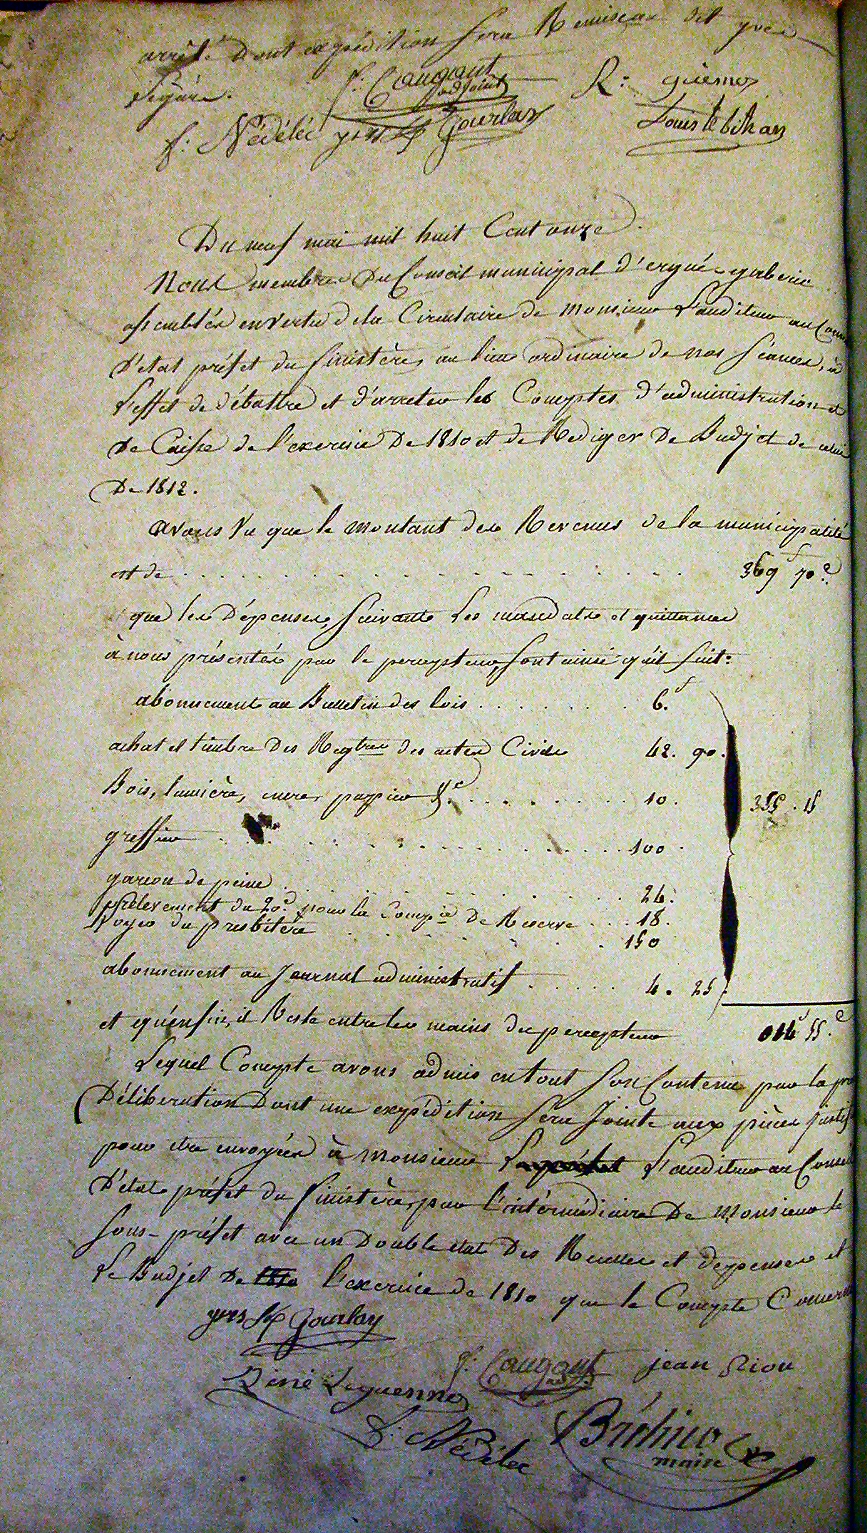 arrêté dont expédition sera Remise au dit yves
Seznec.
f: Caugant adjoint
R: guennoz
f: Nédélec yves Le Gourlay
Louis le bihan
Du neuf mai mil huit Cent onze.
Nous membres du Conseil municipal d'ergué-gaberic
assemblés en vertu de la Circulaire de monsieur L'auditeur au Cons
D'état préfet du finistère, au lieu ordinaire de nos séances, à
L'effet de débattre et d'arreter les Comptes d'administration et
De Caisse de l'exercice De 1810 et de Rediger Le Budjet de celui
De 1812.
avons Vu que le montant des Revenus de la municipalité
est de . . . . . . . . . . 369 f 70 c
que les Dépenses, Suivant Les mandats et quittances
à nous présentés par le percepteur, sont ainsi qu'il suit:
abonnement au Bulletin des lois . . . . . . . . 6. f
achat et timbre des Regtres des actes Civils 42. 90.
Bois, lumière, encre, papier &c. . . . . . . . . 10. 355 . 15
greffier . . . . . . . . . . 100 .
garcon de peine . . . . . . . . 24.
prélevement du 20e pour la Compie De Reserve . . . 18.
Loyer du presbitère . . . . . . . . 150
abonnement au Journal administratif . . . . . . 4. 25.
et qu'enfin, il Reste entre les mains du percepteur 014 f 55. c
Lequel Compte avons admis en tout son Contenu par la pr
Déliberation Dont une expédition sera Jointe aux pièces justif
pour être envoyées à Monsieur L'auditeur au Conseil
D'état préfet du finistère, par l'intérmédiaire De Monsieur le
Sous-préfet avec un Double état Des Recettes et depenses et
Le Budjet de l'exercice de 1810 que le Compte Concerne
yves Le Gourlay
f: Caugant ad jean Riou
René Leguennoz
f: Nédélec Bréhier
maire